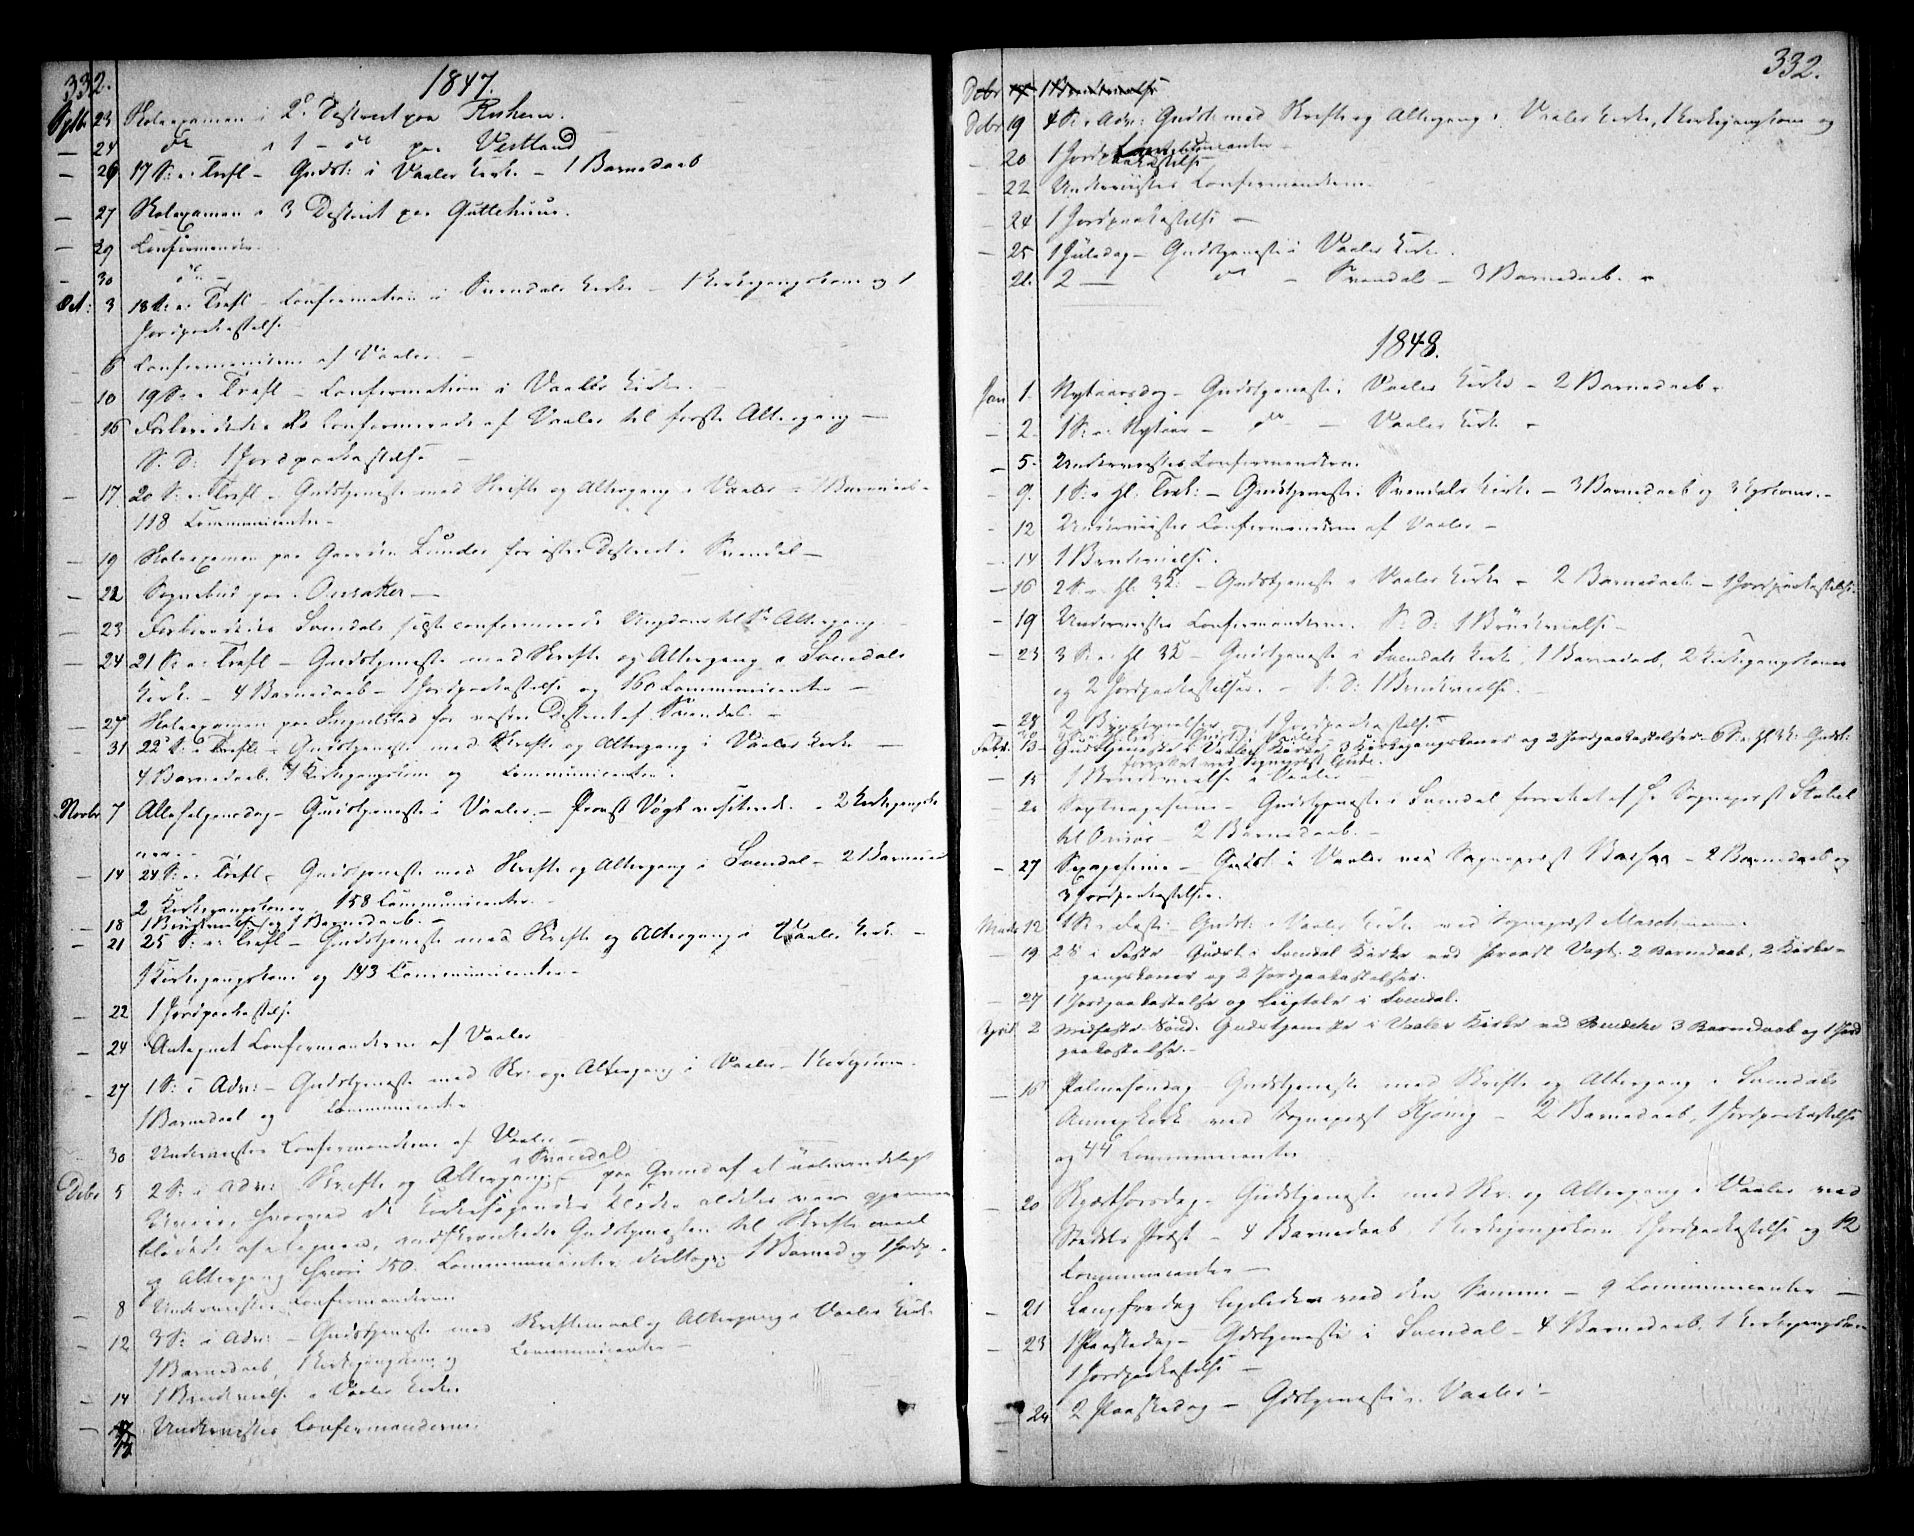 332.
1847.
Septbr 23 Skoleexamen i 2det District paa Rishem.
— 24 do i 1 – do paa Vestland
— 26 17 S: e: Trefl – Gudst: i Vaaler Kirke – 1 Barnedaab
— 27 Skoleexamen i 3 District paa Guttehuus.
— 29 Confirmander
— 30 do –
Oct: 3 18 S: e: Trefl – Confirmation i Svendals Kirke – 1 Kirkegangskone og 1
Jordpaakastelse
6 Confirmanderne af Vaaler. –
— 10 19 S: e: Trefl – Confirmation i Vaaler Kirke. –
— 16 Forberedede de Confirmerede af Vaaler til første Altergang –
S: D: 1 Jordpaakastelse –
— 17. 20 S: e: Trefl – Gudstjeneste med Skrifte og Altergang i Vaaler –
118 Communicanter –
— 19 Skoleexamen paa Gaarden Lunder for østre District i Svendal –
— 22 Sognebud paa Onsaker –
— 23 Forberedede Svendals sidstconfirmerede Ungdom til 1ste Altergang
— 24 21 S: e: Trefl – Gudstjeneste med Skrifte og Altergang i Svendals
Kirke – 4 Barnedaab – 1 Jordpaakastelse og 160 Communicanter –
— 27 Skoleexamen paa Ingulstad for vestre District af Svendal –
— 31 22 S: e: Trefl – Gudstjeneste med Skrifte og Altergang i Vaaler Kirke –
4 Barnedaab. 4 Kirkegangskone og Communicanter.
Novbr 7 Allehelgensdag – Gudstjeneste i Vaaler. – Provst Vogt visiterede. – 2 Kirkegangsko
ner –
— 14 24 S: e: Trefl – Gudstjeneste med Skrifte og Altergang i Svendal – 2 Barnedaab
2 Kirkegangskoner, 158 Communicanter. –
— 18 1 Brudevielse og 1 Barnedaab. –
— 21 25 S: e: Trefl – Gudstjeneste med Skrifte og Altergang i Vaaler Kirke –
1 Kirkegangskone og 143 Communicanter –
— 22 1 Jordpaakastelse
— 24 Antegnet Confirmanderne af Vaaler
— 27 1 S: i Adv: – Gudstjeneste med Skr. og Altergang i Vaaler –
1 Barnedaab og Communicanter
30 Underviste Confirmanderne af Vaaler –
Debr 5 2 S: i Adv: Skrifte og Altergang i Svendal – paa Grund af et ualmindeligt
Uveir, hvorved de Kirkesøgendes Klæder aldeles var gjennem
blødede af Regnen, indskrænkedes Gudstjenesten til Skriftemaal
og Altergang hvori 150 Communicanter deeltoge, – 1 Barned. og 1 Jordp. –
— 8 Underviste Confirmanderne
— 12 3 S: i Adv: – Gudstjeneste med Skriftemaal og Altergang i Vaaler Kirke
1 Barnedaab, 1 Kirkegangskone og Communicanter –
— 14 1 Brudevielse i Vaaler Kirke
— Underviste Confirmanderne.
332.
Debr 17 1 Brudevielse
Debr 19 4 S. i Adv: Gudst: med Skrifte og Altergang i Vaaler Kirke, 1 Kirkegangskone og
Communicanter –
— 20 1 Jordpaakastelse
— 22 Underviste Confirmanderne.
— 24 1 Jordpaakastelse –
— 25 1 Juledag – Gudstjeneste i Vaaler Kirke.
26. 2 — do – Svendal – 3 Barnedaab. –
1848.
Jan 1. Nytaarsdag – Gudstjeneste i Vaaler Kirke – 2 Barnedaab –
— 2. 1 S: e: Nytaar – do – Vaaler Kirke –
— 5. Underviste Confirmanderne.
— 9. 1 S: e: Hl. Trek: – Gudstjeneste i Svendals Kirke – 3 Barnedaab og 3 Kgskoner. –
— 12 Underviiste Confirmanderne af Vaaler –
— 14 1 Brudevielse.
— 16 2 S. e. Hl. 3K: – Gudstjeneste i Vaaler Kirke – 2 Barnedaab – 1 Jordpaakastelse
— 19 Underviste Confirmanderne. S: D: 1 Brudevielse –
— 23 3 S: e: Hl 3K – Gudstjeneste i Svendals Kirke, 1 Barnedaab, 2 Kirkegangskoner
og 2 Jordpaakastelser. – S. D: 1 Brudevielse. –
— 28 2 Brudevielser og 1 Jordpaakastelse –
Febr: 13 – Gudstjeneste i Vaaler Kirke, 3 Kirkegangskoner og 2 Jordpaakastelser. 6 S. e. Hl 3K: Gudst:
forrettet ved Sognepræst Gude.
— 15 1 Brudevielse i Vaaler –
— 20 Septuagesima – Gudstjeneste i Svendal forrettet af Hr Sognepræst Stabel
til Onsøe – 2 Barnedaab. –
— 27 Sexagesima – Gudst. i Vaaler ved Sognepræst – 2 Barnedaab og
3 Jordpaakastelse.
Marts 12 1 S. i Faste: Gudst: i Vaaler Kirke ved Sognepræst Maschmann.
— 19 2 S i Faste – Gudst i Svendal Kirke ved Provst Vogt. 2 Barnedaab, 2 Kirke-
gangskoner og 2 Jordpaakastelser.
— 27 1 Jordpaakastelse og Liigtale i Svendal.
April 2 Midfaste-Sønd: Gudstjeneste i Vaaler Kirke ved 3 Barnedaab og 1 Jord
paakastelse. –
— 16 Palmesøndag – Gudstjeneste med Skrifte og Altergang i Svendals
Annexkirke ved Sognepræst – 2 Barnedaab, 1 Jordpaakastelse
og 44 Communicanter
— 20 Skjærthorsdag – Gudstjeneste med Skr. og Altergang i Vaaler ved
Præst – 4 Barnedaab, 1 Kirkegangskone, 1 Jordpaakastelse og 12
Communicanter –
— 21 Langfredag ligeledes ved den Samme – 9 Communicanter –
— 23 1 Paaskedag – Gdstjeneste i Svendal – 4 Barnedaab, 1 Kirkegangskone
1 Jordpaakastelse –
— 24 2 Paaskedag – Gdstjeneste i Vaaler –